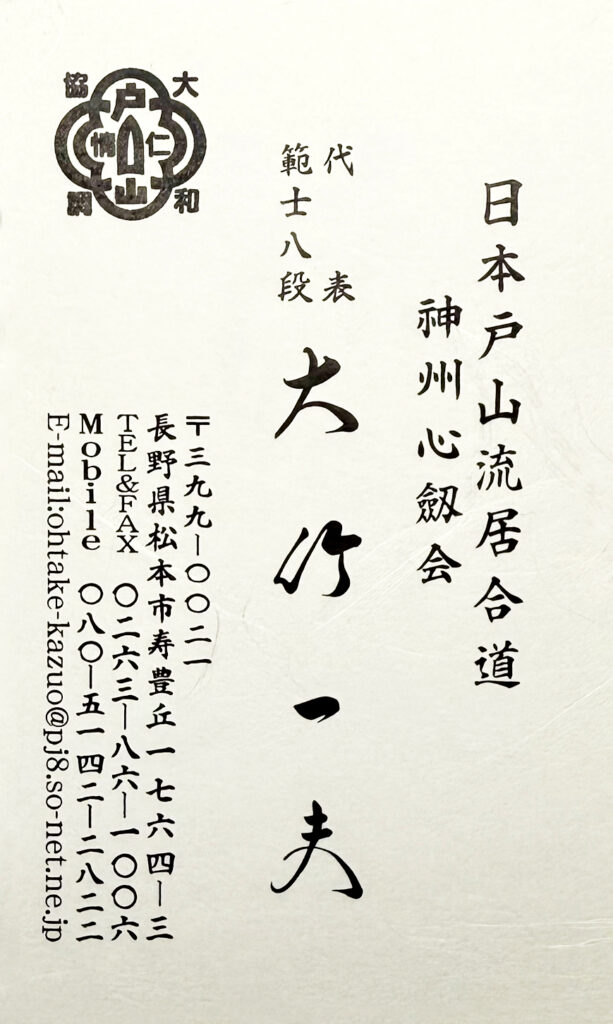 日本戸山流居合道
神州心劔会
代表
範士八段
大竹一夫
〒三九九―〇〇二一
長野県松本市寿豊丘一七六四―三
TEL&FAX 〇二六三―八六―一〇〇六
Mobile 〇八〇―五一四二―二八二二
E-mail:ohtake-kazuo@pj8.so-net.ne.jp
大和
協調
戸山
仁
情